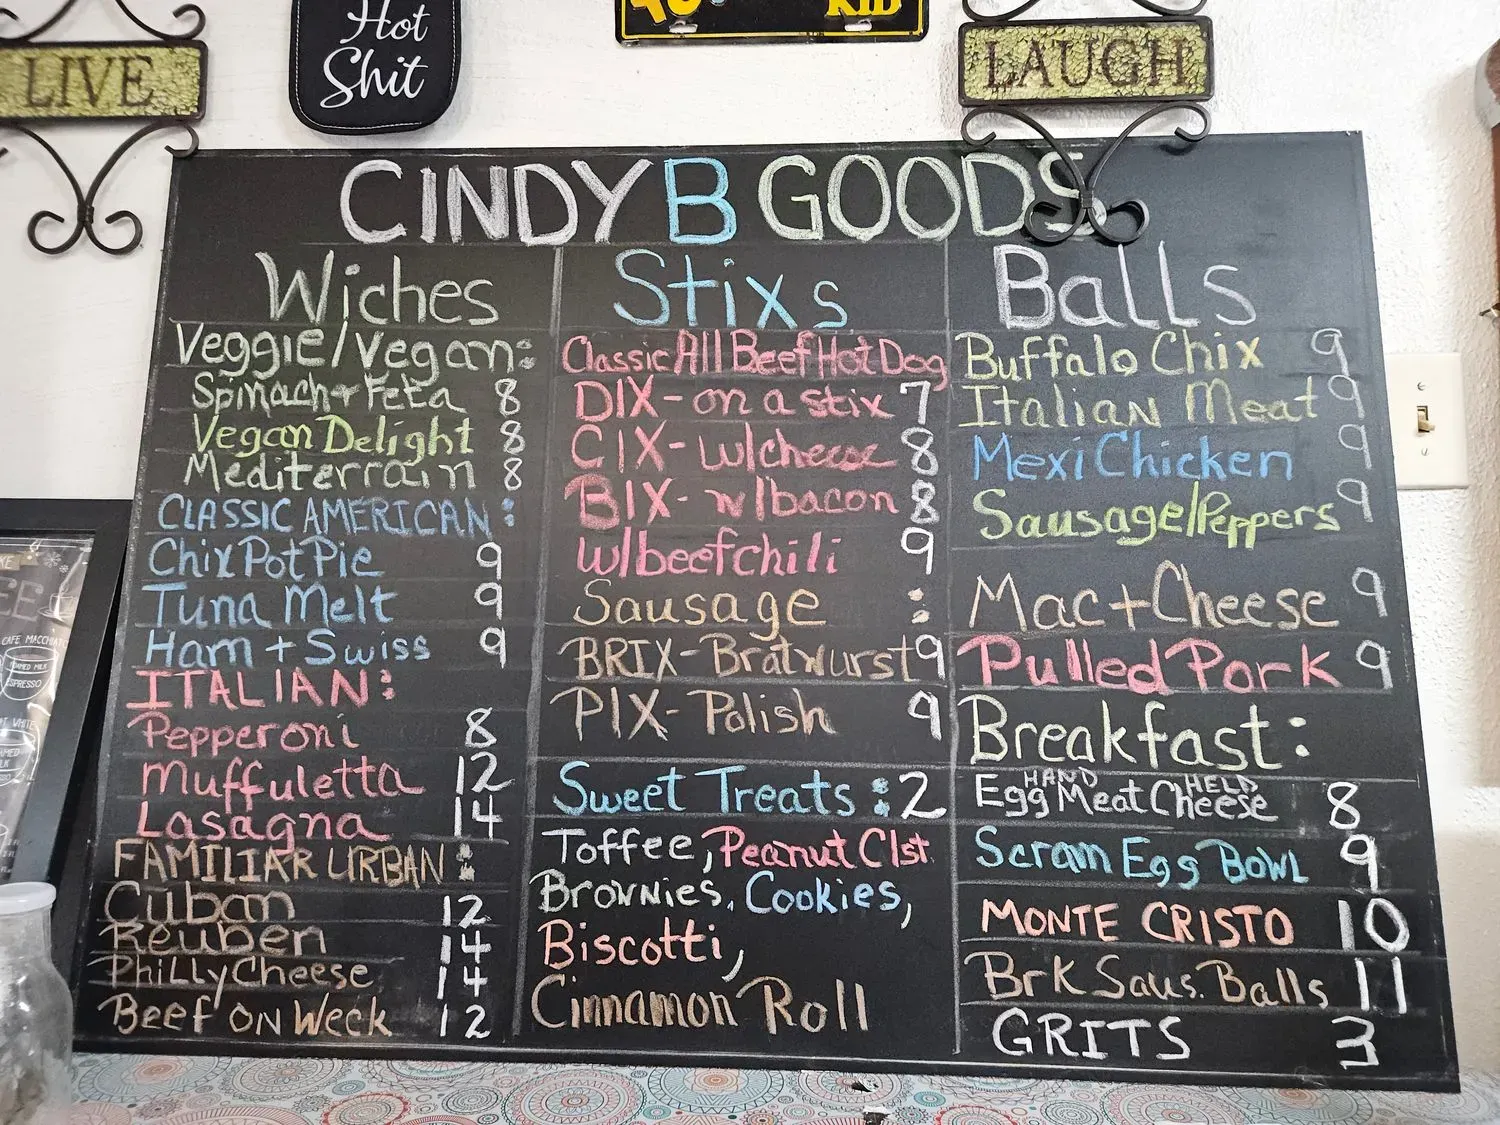 LIVE
Hot
Shit
KID
LAUGH
CINDY B GOODS
Wiches
Veggie/Vegan:
Spinach + Feta 8
Vegan Delight 8
Mediterrain 8
CLASSIC AMERICAN:
Chix Pot Pie 9
Tuna Melt 9
Ham + Swiss 9
ITALIAN:
Pepperoni 8
Muffuletta 12
Lasagna 14
FAMILIAR URBAN:
Cuban 12
Reuben 14
Philly Cheese 14
Beef on Weck 12
Stixs
Classic All Beef Hot Dog
DIX - on a stix 7
CIX - w/cheese 8
BIX - w/bacon 8
w/beef chili 9
Sausage :
BRIX - Bratwurst 9
PIX - Polish 9
Sweet Treats: 2
Toffee, Peanut Clst
Brownies, Cookies,
Biscotti,
Cinnamon Roll
Balls
Buffalo Chix 9
Italian Meat 9
Mexi Chicken 9
Sausage/Peppers 9
Mac + Cheese 9
Pulled Pork 9
Breakfast:
HAND HELD
Egg Meat Cheese 8
Scram Egg Bowl 9
MONTE CRISTO 10
Brk Saus. Balls 11
GRITS 3
CAFE MACCHIAT
ESPRESSO